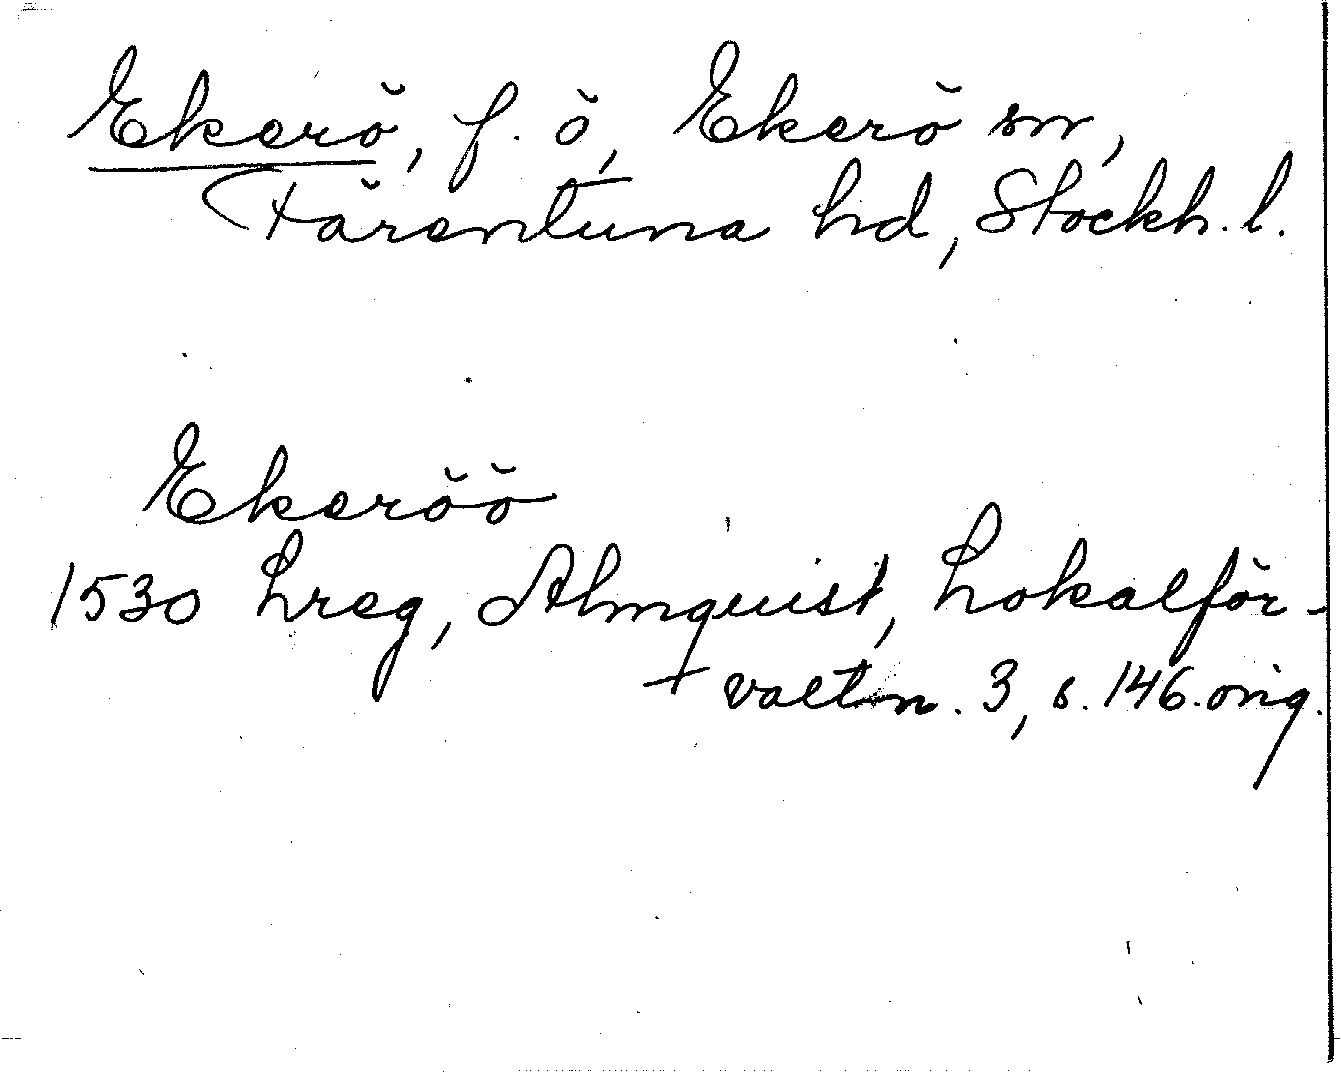 Ekerö, f. ö, Ekerö sn,
Färentuna hd, Stockh. l.
Ekeröö
1530 Lreg, Almquist, Lokalför-
valtn. 3, s. 146. orig.